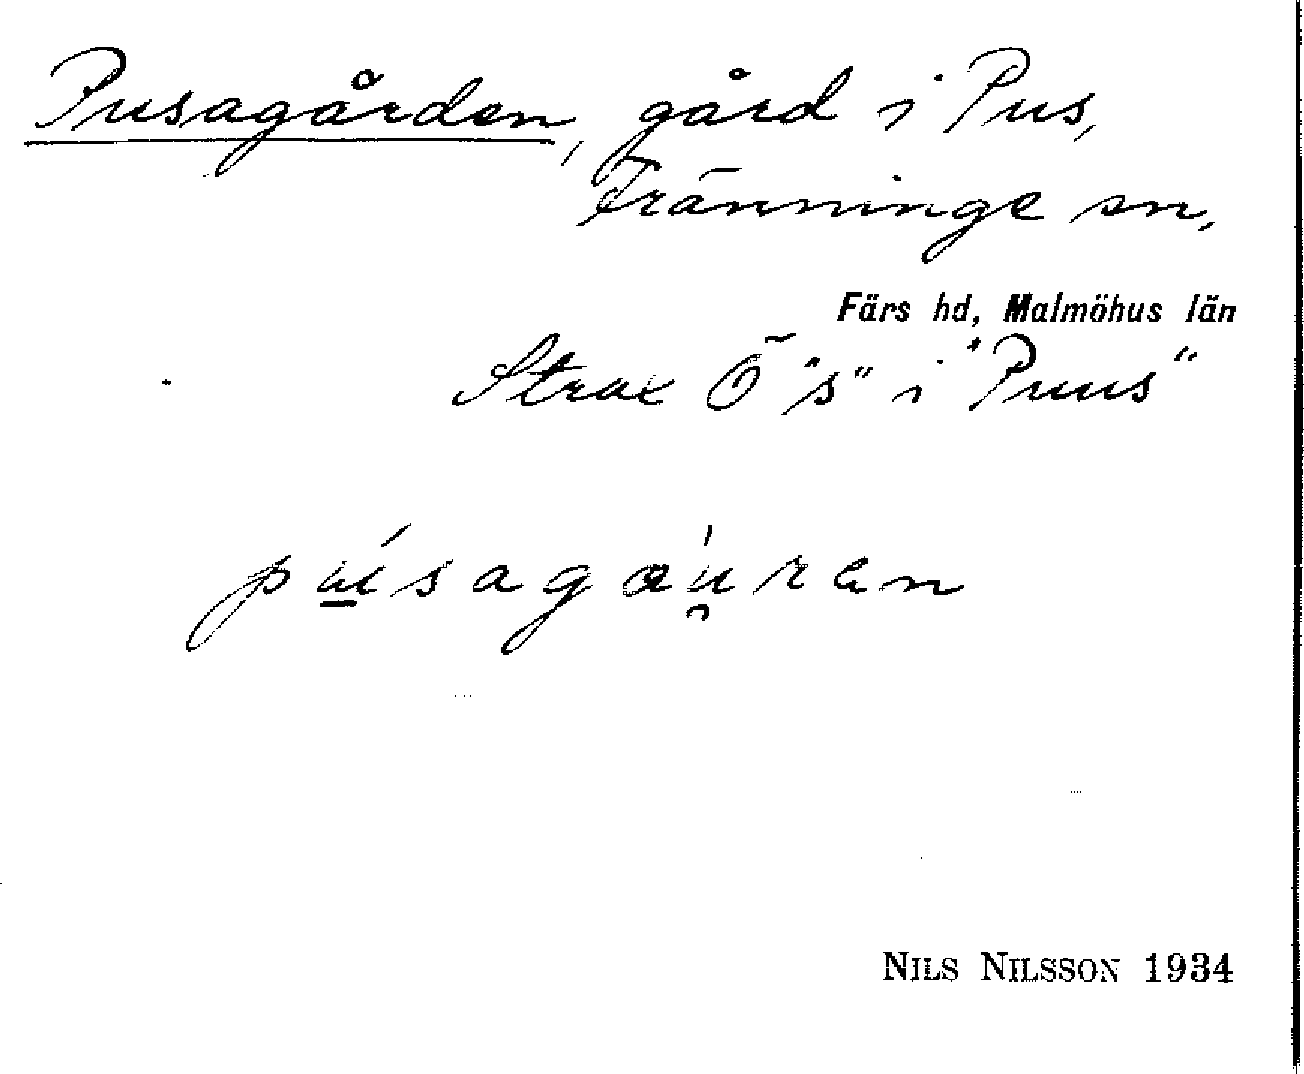 Pusagården, gård i Pus,
Fränninge sn,
Färs hd, Malmöhus län
Strax Ö "s" i "Puus"
pu̱ísagæúran
NILS NILSSON 1934